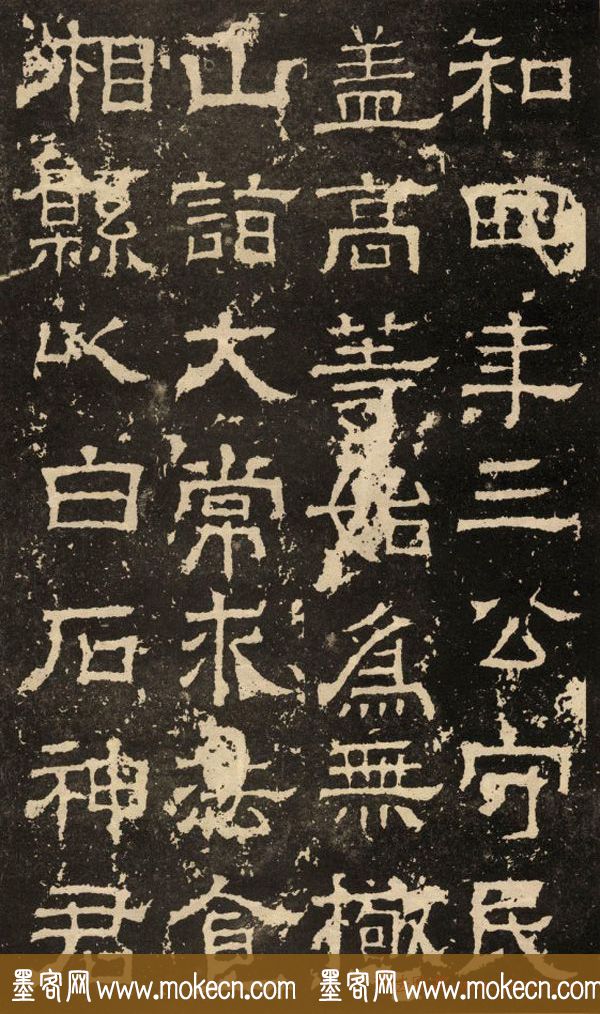 和四年三公守民
盖高等始為無極
山詣大常求法食
相縣以白石神君
墨客网 www.mokecn.com 墨客网 www.mokecn.com